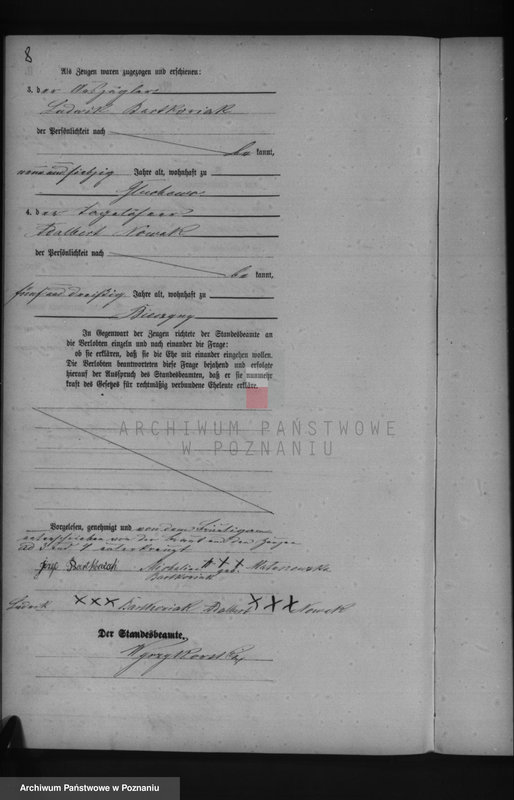 8
Als Zeugen waren zugezogen und erschienen:
3. der
Ludwik Bartkowiak
der Persönlichkeit nach
be kannt,
neun und fünfzig Jahre alt, wohnhaft zu
Gluchowo
4. der Tagelöhner
Adalbert Nowak
der Persönlichkeit nach
be kannt,
fünf und dreißig Jahre alt, wohnhaft zu
In Gegenwart der Zeugen richtete der Standesbeamte an
die Verlobten einzeln und nach einander die Frage:
ob sie erklären, daß sie die Ehe mit einander eingehen wollen.
Die Verlobten beantworteten diese Frage bejahend und erfolgte
hierauf der Ausspruch des Standesbeamten, daß er sie nunmehr
kraft des Gesetzes für rechtmäßig verbundene Eheleute erkläre.
ARCHIWUM PAŃSTWOWE
W POZNANIU
Vorgelesen, genehmigt und von dem Bräutigam
unterschrieben von der Braut und den Zeugen
ad 3 und 4 unterkreuzt
Józef Bartkowiak Michalina XXX geb.
Bartkowiak
Ludwik XXX Bartkowiak Adalbert XXX Nowak
Der Standesbeamte.
Archiwum Państwowe w Poznaniu